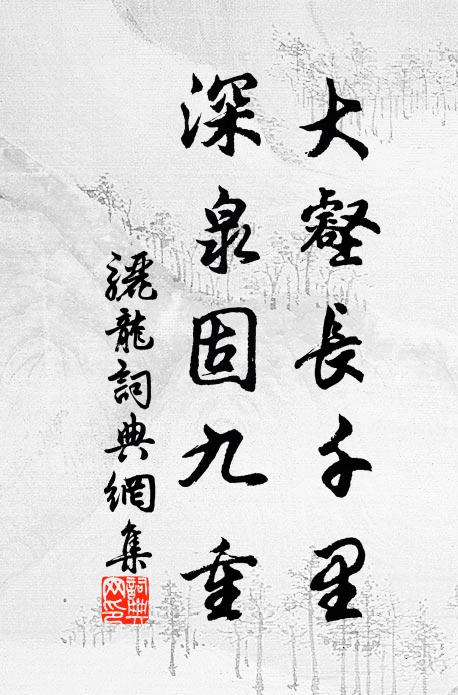 大壑長千里
深泉固九重
驪龍詞典網集
詞典